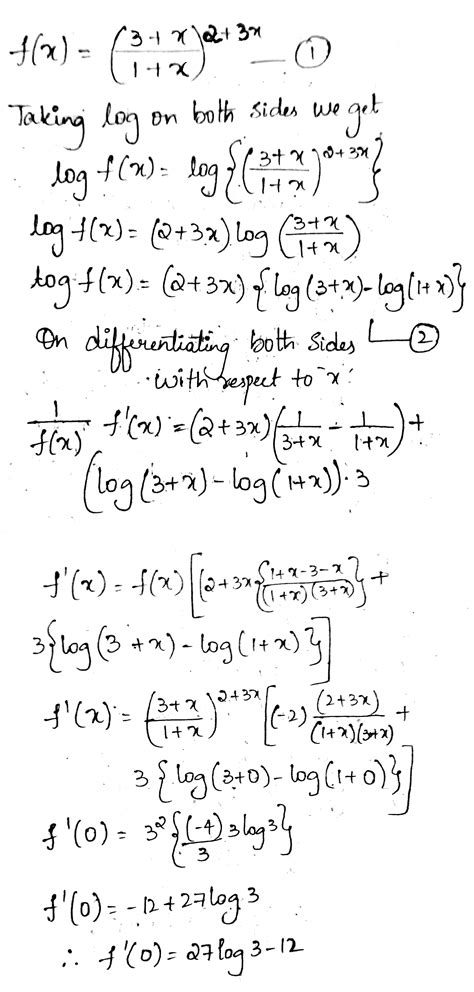 f(x) = ((3+x)/(1+x))^(2+3x) — ①
Taking log on both sides we get
log f(x) = log{((3+x)/(1+x))^(2+3x)}
log f(x) = (2+3x) log ((3+x)/(1+x))
log f(x) = (2+3x) {log(3+x)-log(1+x)}
On differentiating both sides — ②
with respect to 'x'
1/f(x) · f'(x) = (2+3x)(1/(3+x) - 1/(1+x)) +
(log(3+x) - log(1+x)) · 3
f'(x) = f(x) [(2+3x {(1+x-3-x)/((1+x)(3+x))} +
3{log(3+x) - log(1+x)}]
f'(x) = ((3+x)/(1+x))^(2+3x) [(-2) (2+3x)/((1+x)(3+x)) +
3 {log(3+0) - log(1+0)}]
f'(0) = 3^2 {(-4)/3 3log3}
f'(0) = -12 + 27log3
∴ f'(0) = 27log3-12